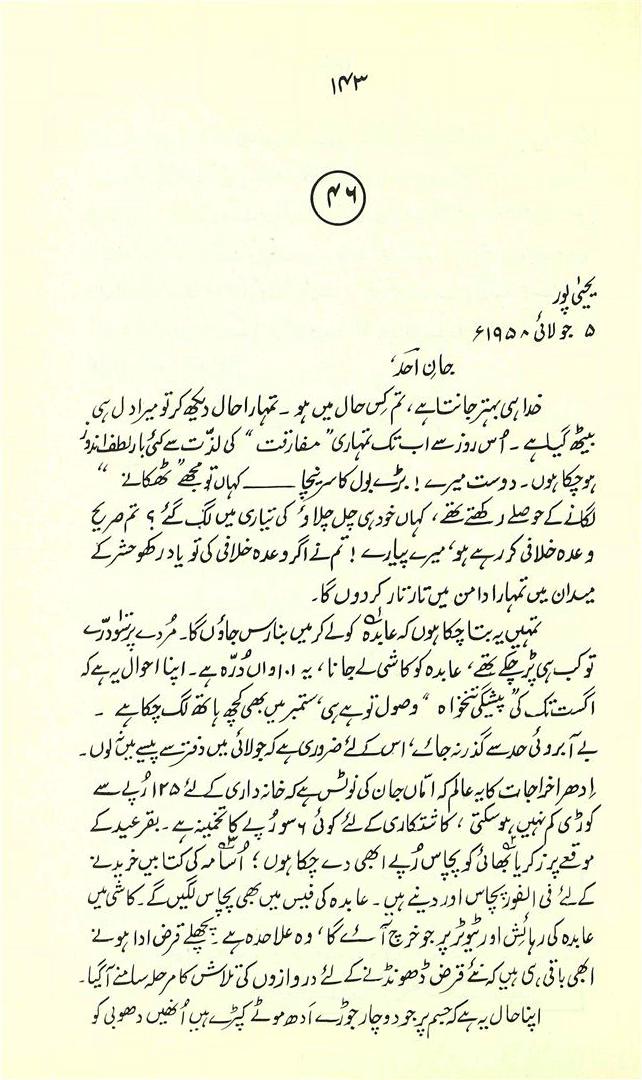 ۱۴۳
۴۶
یحییٰ پور
۵ جولائی ۱۹۵۸ء
جانِ احمد،
خدا ہی بہتر جانتا ہے، تم کِس حال میں ہو۔ تمہارا حال دیکھ کر تو میرا دل ہی
بیٹھ گیا ہے۔ اُس روز سے اب تک تمہاری ”مفارقت“ کی لذّت سے کئی بار لطف اندوز
ہو چکا ہوں۔ دوست میرے! بڑے بول کا سر نیچا ـــــ کہاں تو مجھے ”ٹھکانے“
لگانے کے حوصلے رکھتے تھے، کہاں خود ہی چل چلاؤ کی تیاری میں لگ گئے؟ تم صریح
وعدہ خلافی کر رہے ہو، میرے پیارے! تم نے اگر وعدہ خلافی کی تو یاد رکھو حشر کے
میدان میں تمہارا دامن میں تار تار کر دوں گا۔
تمہیں یہ بتا چکا ہوں کہ عابدہ۱ کو لے کر میں بنارس جاؤں گا۔ مُردے پر نٹو دُرّے
تو کب ہی پڑ چکے تھے، عابدہ کو کاشی لے جانا، یہ ۱۰۱ واں دُرّہ ہے۔ اپنا احوال یہ ہے کہ
اگست تک کی ”پیشگی تنخواہ“ وصول تو ہے ہی، ستمبر میں بھی کچھ ہاتھ لگ چکا ہے۔
بے آبروئی حد سے گذر نہ جائے، اس کے لئے ضروری ہے کہ جولائی میں دفتر سے پیسے میں نہ لوں۔
اِدھر اخراجات کا یہ عالم کہ امّاں جان کی نوٹس ہے کہ خانہ داری کے لئے ۱۲۵ رُپے سے
کوڑی کم نہیں ہو سکتی، کاشتکاری کے لئے کوئی ۶ سو رُپے کا تخمینہ ہے۔ بقر عید کے
موقعے پر زکریا۲ بھائی کو پچاس رُپے ابھی دے چکا ہوں؛ اُسامہ۳ کی کتابیں خریدنے
کے لئے فی الفور پچاس اور دینے ہیں۔ عابدہ کی فیس میں بھی پچاس لگیں گے۔ کاشی میں
عابدہ کی رہائش اور ٹیوٹر پر جو خرچ آئے گا، وہ علاحدہ ہے۔ پچھلے قرض ادا ہونے
ابھی باقی ہی ہیں کہ نئے قرض ڈھونڈنے کے لئے دروازوں کی تلاش کا مرحلہ سامنے آ گیا۔
اپنا حال یہ ہے کہ جسم پر جو دو چار جوڑے اَدھ موٹے کپڑے ہیں اُنھیں دھوبی کو